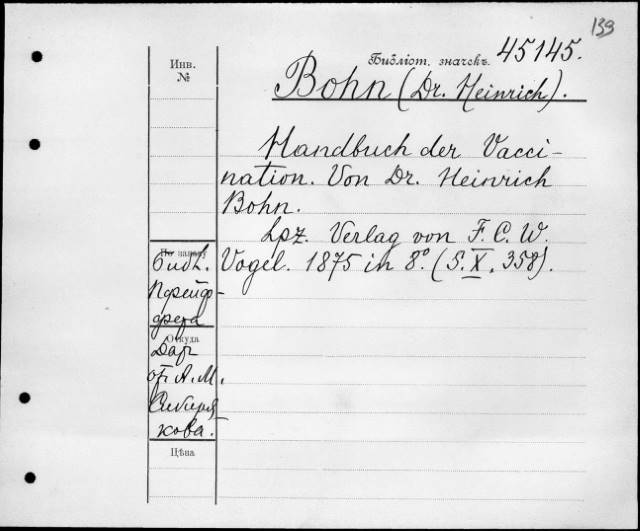 139
Библіот. значекъ. 45145.
Инв.
№
Bohn (Dr. Heinrich).
Handbuch der Vacci-
nation. Von Dr. Heinrich
Bohn.
Lpz. Verlag von F. C. W.
Vogel. 1875 in 8° (S. X, 358).
Библ.
Пфейф-
фера
Откуда
Дар
от А. М.
Сибиря-
кова.
Цѣна